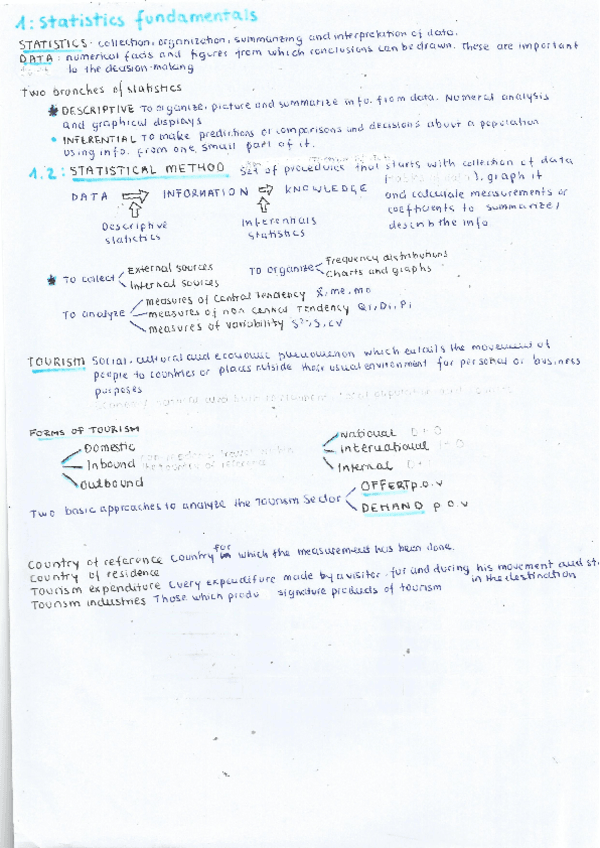 1: Statistics fundamentals
STATISTICS - collection, organization, summarizing and interpretation of data.
DATA: numerical facts and figures from which conclusions can be drawn. These are important
to the decision-making
Two branches of statistics
* DESCRIPTIVE To organize, picture and summarize info. from data. Numeral analysis
and graphical displays
• INFERENTIAL TO make predictions or comparisons and decisions about a population
using info. from one small part of it.
1.2: STATISTICAL METHOD Set of procedures that starts with collection of data
DATA ⇒ INFORMATION ⇒ KNOWLEDGE
graph it
and calculate measurements or
coefficients to summarize/
describ the info.
Descriptive
statictics
Inferentials
Statistics
* TO collect External sources
Internal sources
TO organize Frequency distributions
Charts and graphs
TO analyze measures of central tendency x̄, me, mo
measures of non central tendency Qi, Di, Pi
measures of variability S², S, CV
TOURISM Social, cultural and economic phenomenon which entails the movement of
people to countries or places outside their usual environment for personal or business
purposes
FORMS OF TOURISM
Domestic
Inbound
Outbound
National
International
Internal
Two basic approaches to analyze the Tourism Sector OFFERT p.o.v
DEMAND p.o.v
Country of reference Country for which the measurement has been done.
Country of residence
Tourism expenditure Every expenditure made by a visitor for and during his movement and
in the destination
Tourism industries Those which produ signature products of tourism